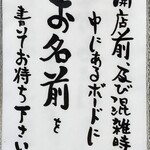 開店前、及び混雑時
中にあるボードに
お名前を
書いてお待ち下さい